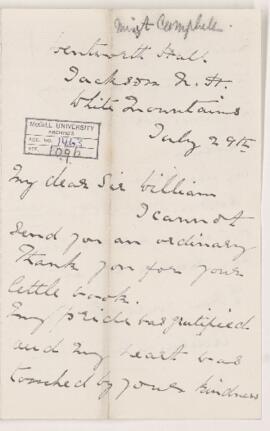 Miss A Campbell.
Wentworth Hall.
Jackson N. H.
White Mountains
July 29th
McGILL UNIVERSITY
ARCHIVES
ACC. NO. 1463
REF. 1090
My dear Sir William
I cannot
send you an ordinary
Thank you for your
little book.
My pride was gratified
and my heart was
touched by your kindness